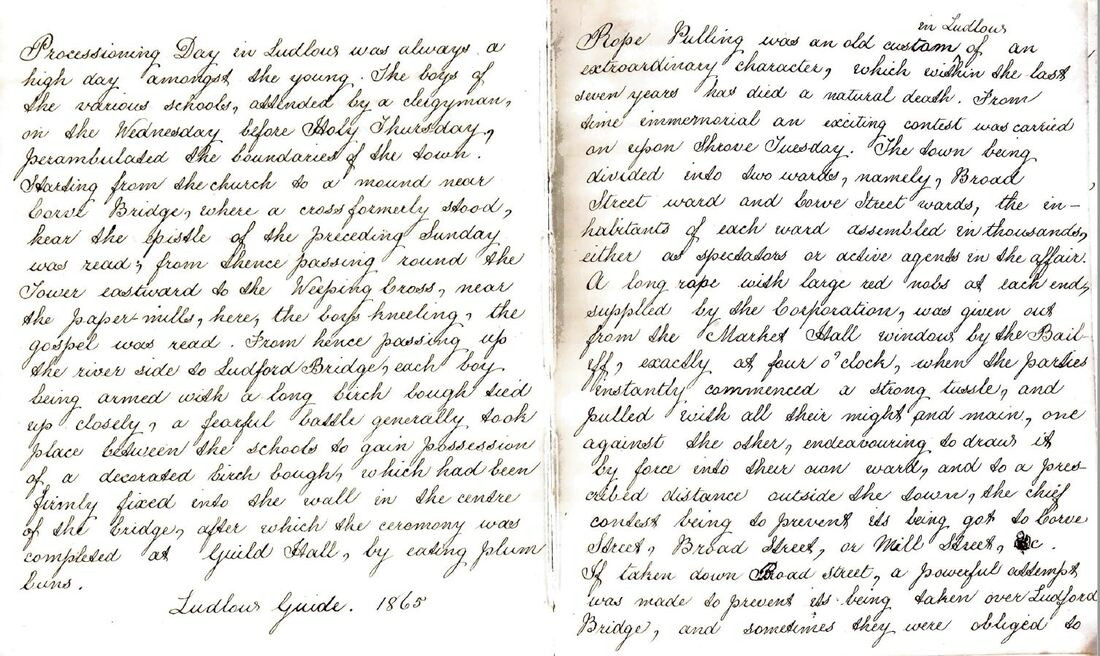 Processioning Day in Ludlow was always a
high day amongst the young. The boys of
the various schools, attended by a clergyman,
on the Wednesday before Holy Thursday,
perambulated the boundaries of the town.
Starting from the church to a mound near
Corve Bridge, where a cross formerly stood,
hear the epistle of the preceding Sunday
was read; from thence passing round the
Tower eastward to the Weeping Cross, near
the paper-mills, here, the boys kneeling, the
gospel was read. From hence passing up
the river side to Ludford Bridge, each boy
being armed with a long birch bough tied
up closely, a fearful battle generally took
place between the schools to gain possession
of a decorated birch bough, which had been
firmly fixed into the wall in the centre
of the bridge, after which the ceremony was
completed at Guild Hall, by eating plum
buns.
Ludlow Guide. 1865
in Ludlow
Rope Pulling was an old custom of an
extraordinary character, which within the last
seven years has died a natural death. From
time immemorial an exciting contest was carried
on upon Shrove Tuesday. The town being
divided into two wards, namely, Broad
Street ward and Corve Street wards, the in-
habitants of each ward assembled in thousands,
either as spectators or active agents in the affair.
A long rope with large red nobs at each end,
supplied by the Corporation, was given out
from the Market Hall window by the Bail-
iff, exactly at four o'clock, when the parties
instantly commenced a strong tussle, and
pulled with all their might and main, one
against the other, endeavouring to draw it
by force into their own ward, and to a pres-
cribed distance outside the town, the chief
contest being to prevent its being got to Corve
Street, Broad Street, or Mill Street, &c.
If taken down Broad Street, a powerful attempt
was made to prevent its being taken over Ludford
Bridge, and sometimes they were obliged to